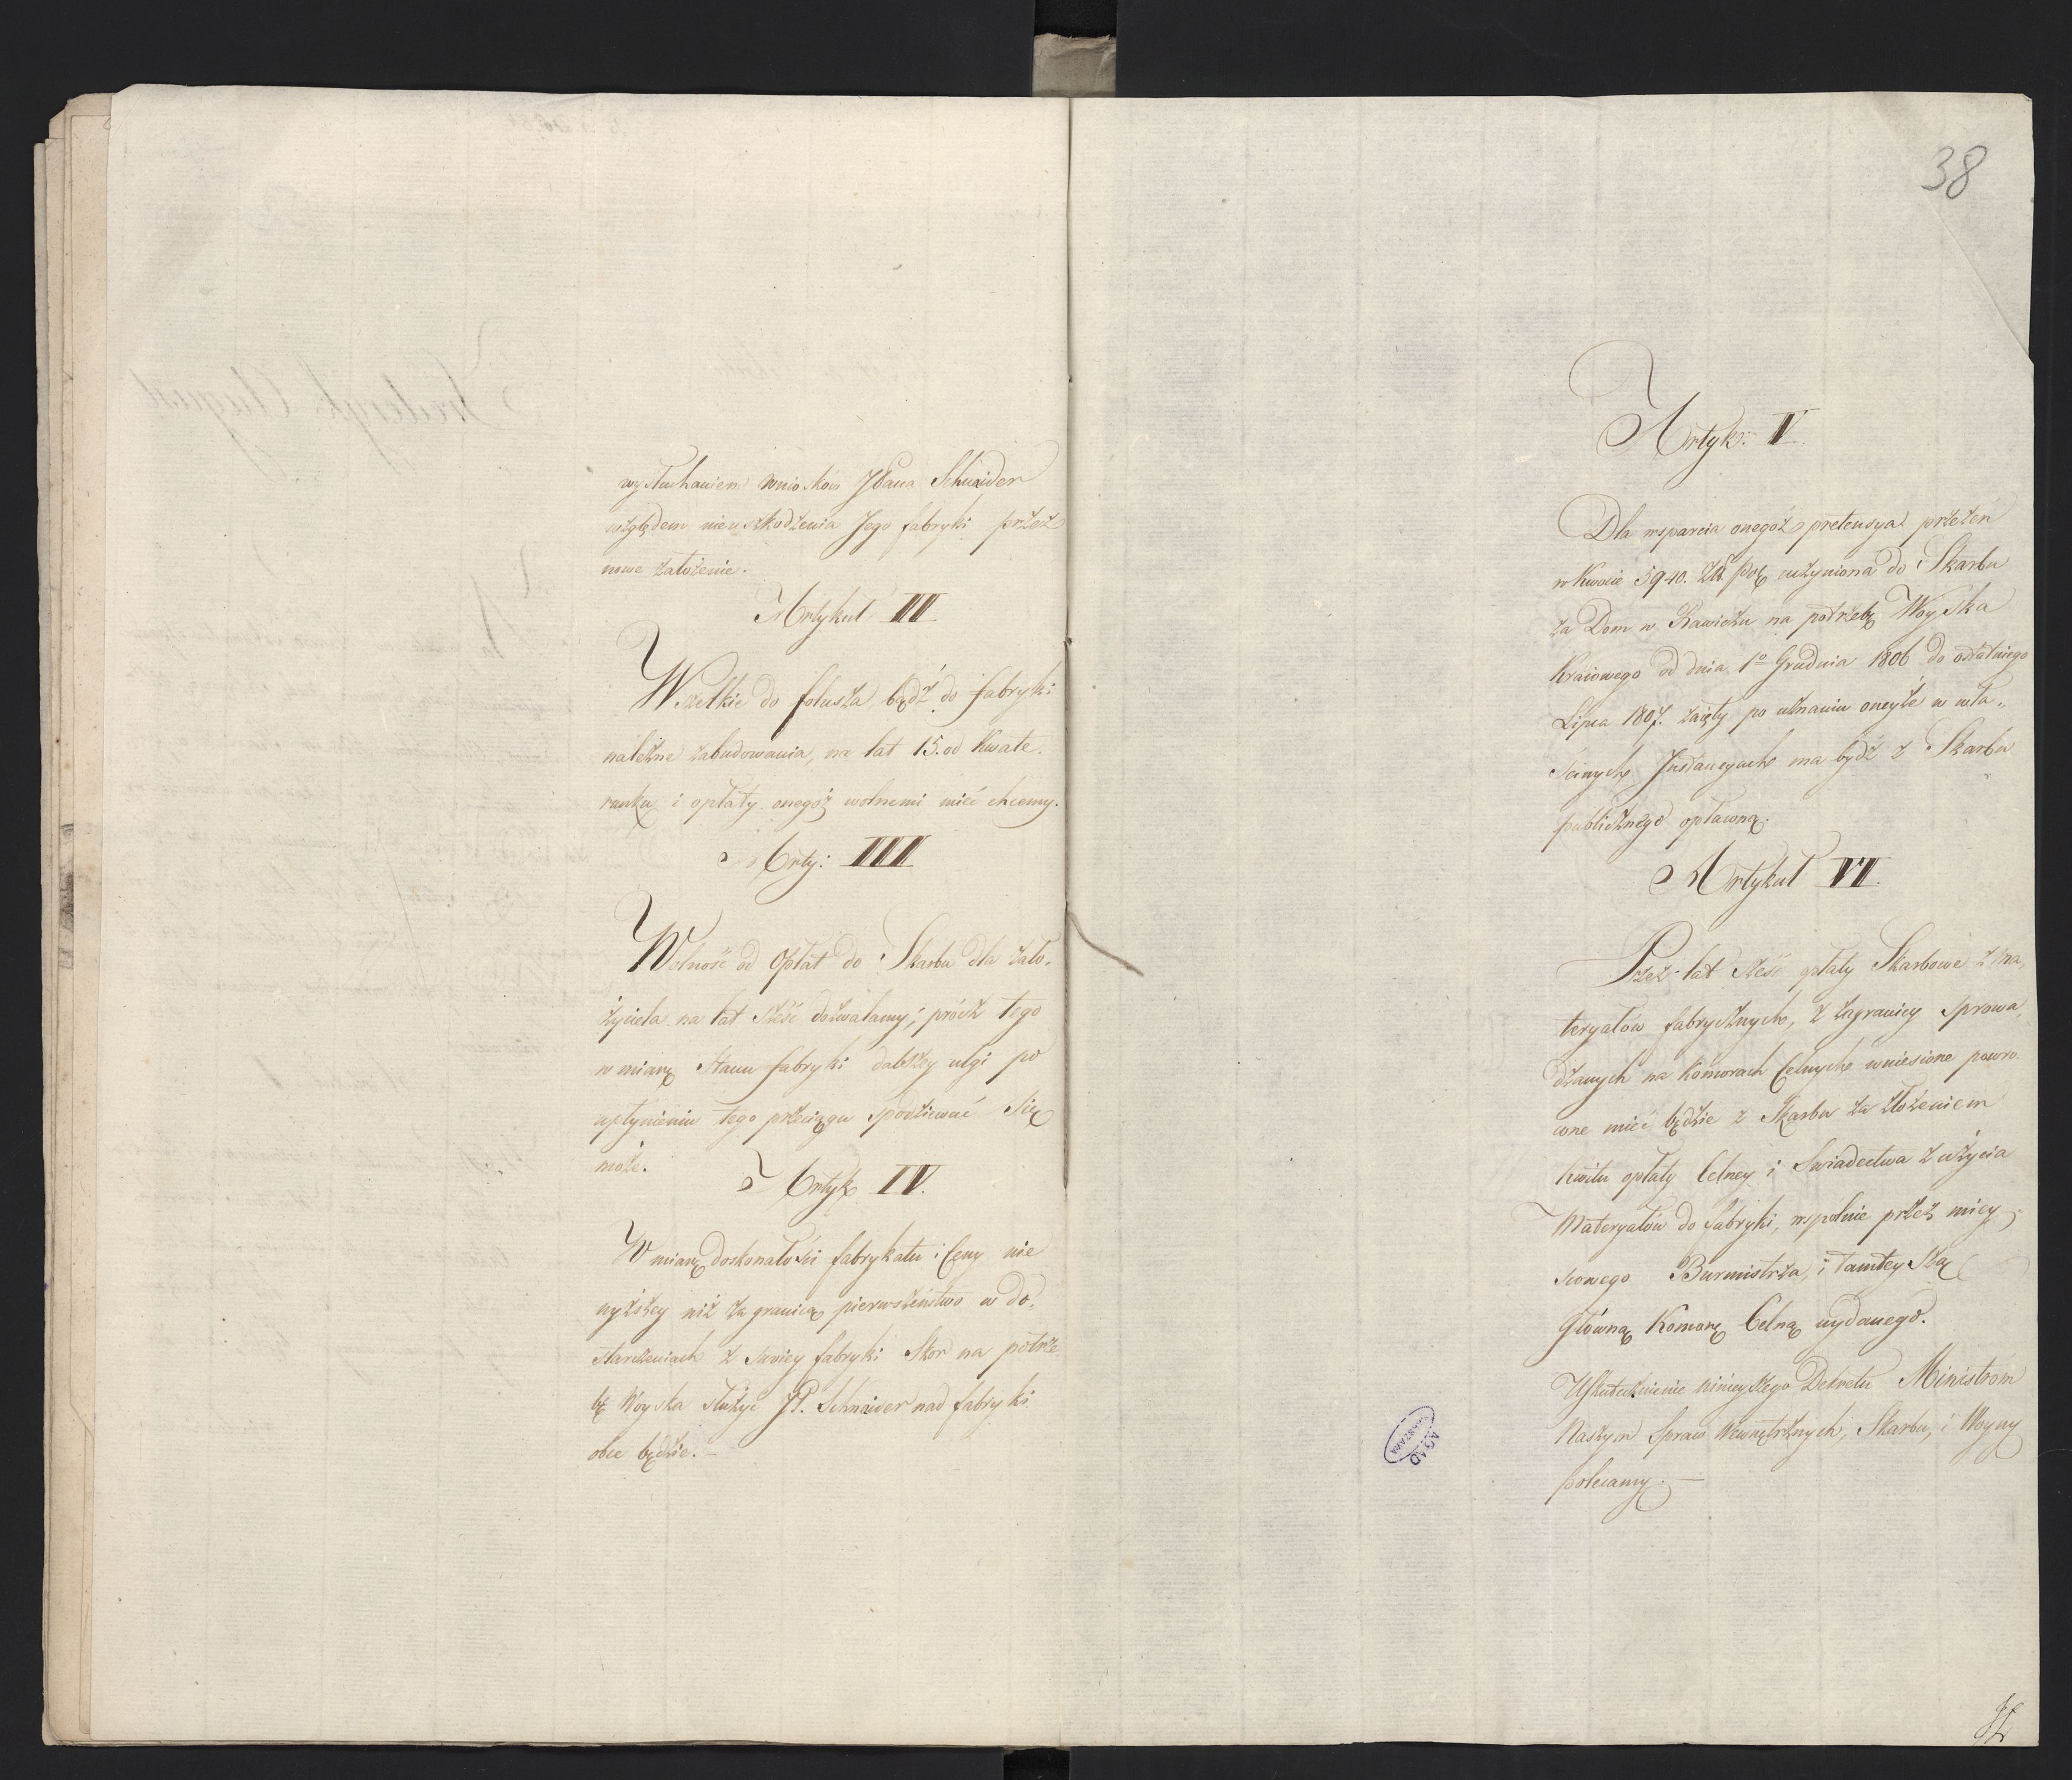 wysłuchaniem wniosków JPana Schnaider
względem nieuszkodzenia Jego fabryki przez
nowe założenie.
Artykuł II
Wszelkie do folusza, bądź do fabryki
należne zabudowania, na lat 15. od kwate-
runku i opłaty onegoż wolnemi mieć chcemy.
Arty: III
Wolność od Opłat do Skarbu dla zało-
życiela na lat sześć dozwalamy; prócz tego
w miarę Stanu fabryki dalszey ulgi po
upłynieniu tego przeciągu spodziewać się
może.
Artyk IV.
W miarę doskonałości fabrykatu i Ceny nie
wyższey niż za granicą pierwszeństwo w do-
starczeniach z swoiey fabryki Skor na potrze-
bę Woyska służyć JP. Schnaider nad fabryki
obce będzie.
38
Artyk: V.
Dla wsparcia onegoż pretensya przezeń
w kwocie 5940. Zł Pol uczyniona do Skarbu
za Dom w Rawiczu na potrzebę Woyska
Kraiowego od dnia 1o Grudnia 1806 do ostatniego
Lipca 1807. zaięty po uznaniu oneyże w wła-
ściwych Instancyach ma bydź z Skarbu
publicznego opłaconą.
Artykuł VI.
Przez lat sześć opłaty Skarbowe z ma-
teryałów fabrycznych, z zagranicy sprowa-
dzanych na Komorach Celnych wniesione powro-
cone mieć będzie z Skarbu za złożeniem
kwitu opłaty Celney i Swiadectwa z użycia
Materyałów do fabryki, wspolnie przez miey-
scowego Burmistrza, i tamteyszą
Główną Komorę Celną wydanego.
Uskutecznienie ninieyszego Dekretu Ministrom
Naszym Spraw Wewnętrznych, Skarbu, i Woyny
polecamy. —
AGAD
WARSZAWA